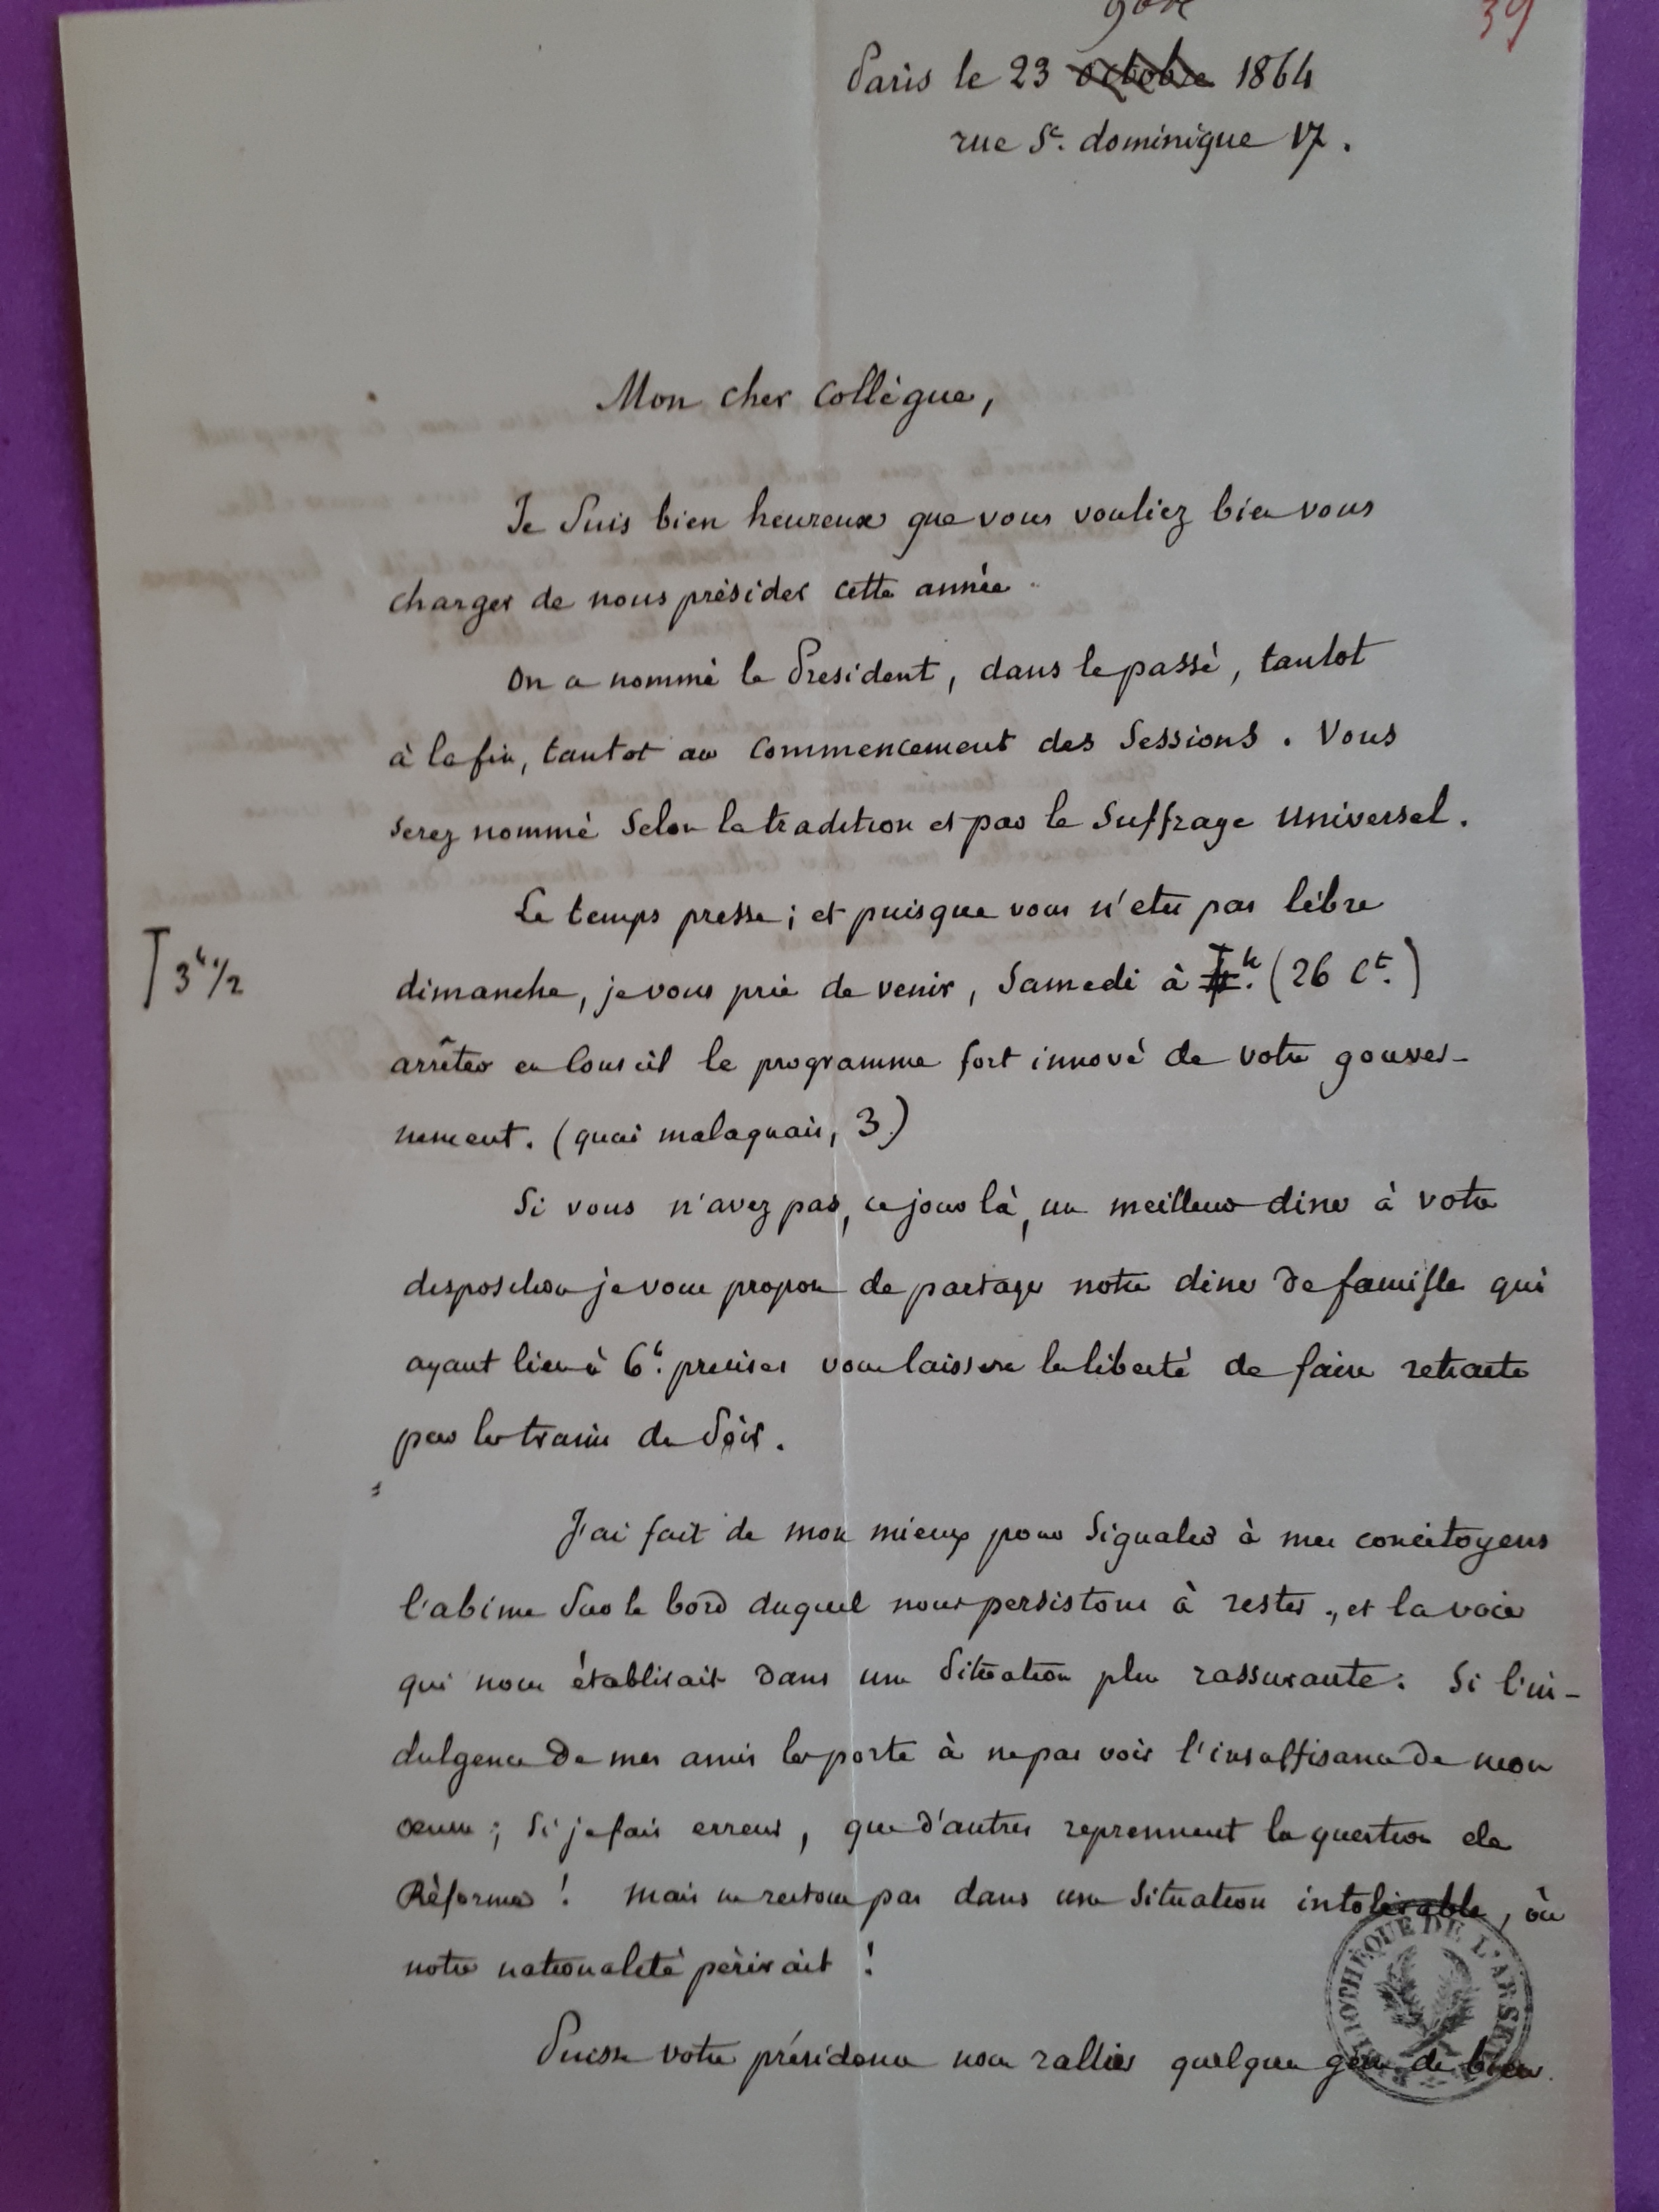 9bre
39
Paris le 23 octobre 1864
rue St. dominique 17.
Mon cher collègue,
Je suis bien heureux que vous vouliez bien vous
charger de nous présider cette année.
On a nommé le President, dans le passé, tantot
à la fin, tantot au commencement des Sessions. Vous
serez nommé selon la tradition et par le suffrage universel.
Le temps presse; et puisque vous n'etes pas libre
dimanche, je vous prie de venir, Samedi à h. (26 Ct.)
3h 1/2
arrêter en Conseil le programme fort innové de votre gouver-
nement. (quai malaquais, 3.)
Si vous n'avez pas, ce jour là, un meilleur diner à votre
disposition je vous propose de partager notre diner de famille qui
ayant lieu à 6h. precises vous laissera la liberté de faire retraite
par les trains du Soir.
J'ai fait de mon mieux pour signaler à mes concitoyens
l'abime sur le bord duquel nous persistons à rester, et la voie
qui nous établirait dans une situation plus rassurante. Si l'in-
dulgence de mes amis les porte à ne pas voir l'insuffisance de mon
œuvre; si je fais erreur, que d'autres reprennent la question de
Réforme! mais ne restons pas dans une situation intolérable, où
notre nationalité périrait!
Puisse votre présidence nous rallier quelques gens de bien.
BIBLIOTHÈQUE DE L'ARSENAL